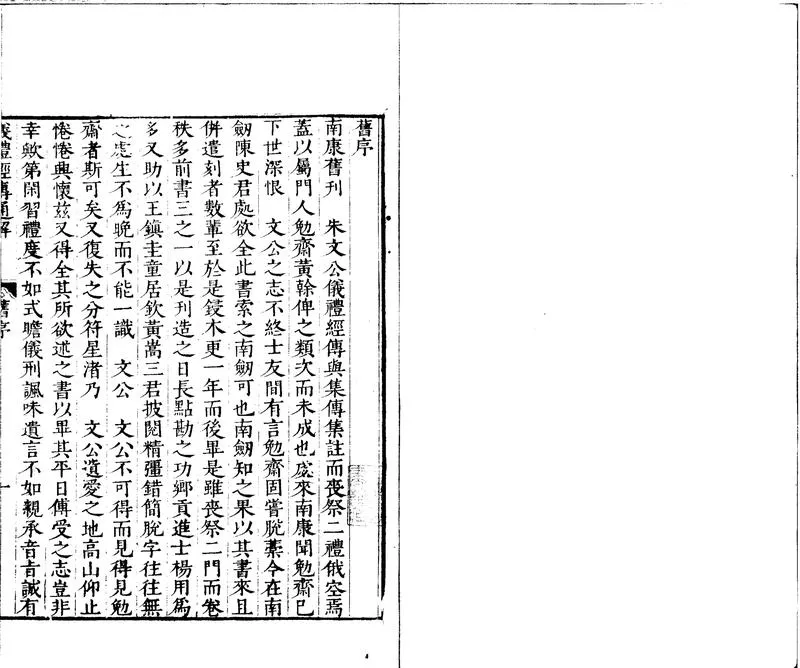 舊序
南康舊刊 朱文公儀禮經傳與集傳集註而喪祭二禮俄空焉
蓋以屬門人勉齋黃榦俾之類次而未成也虙來南康聞勉齋已
下世深恨 文公之志不終士友間有言勉齋固嘗脫藁今在南
劒陳史君處欲全此書索之南劒可也南劒知之果以其書來且
併遣刻者數輩至於是鋟木更一年而後畢是雖喪祭二門而卷
秩多前書三之一以是刊造之日長點勘之功鄉貢進士楊用為
多又助以王鎮圭童居欽黃嵩三君披閱精彊錯簡脫字往往無
之虙生不為晚而不能一識 文公 文公不可得而見得見勉
齋者斯可矣又復失之分符星渚乃 文公遺愛之地高山仰止
惓惓興懷茲又得全其所欲述之書以畢其平日傅受之志豈非
幸歟第閑習禮度不如式瞻儀刑諷味遺言不如親承音旨誠有
儀禮經傳通解 舊序 一